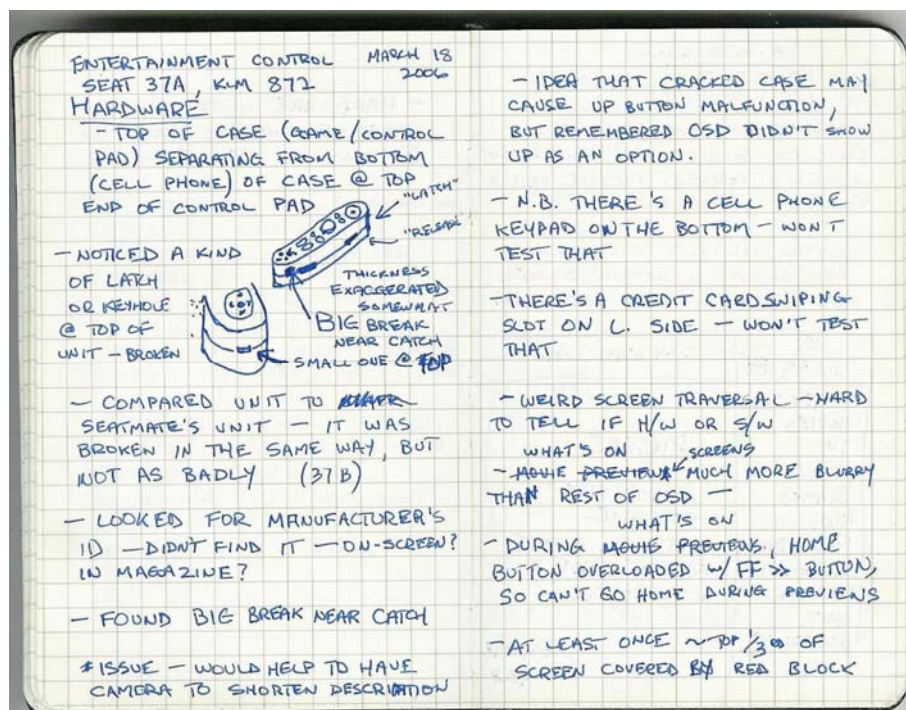 ENTERTAINMENT CONTROL MARCH 18
2006
SEAT 37A, KLM 872
HARDWARE
- TOP OF CASE (GAME/CONTROL
PAD) SEPARATING FROM BOTTOM
(CELL PHONE) OF CASE @ TOP
END OF CONTROL PAD
"LATCH"
"RELEASE"
- NOTICED A KIND
OF LATCH
OR KEYHOLE
@ TOP OF
UNIT - BROKEN
THICKNESS
EXAGGERATED
SOMEWHAT
BIG BREAK
NEAR CATCH
SMALL ONE @ TOP
- COMPARED UNIT TO
SEATMATE'S UNIT - IT WAS
BROKEN IN THE SAME WAY, BUT
NOT AS BADLY (37B)
- LOOKED FOR MANUFACTURER'S
ID - DIDN'T FIND IT - ON-SCREEN?
IN MAGAZINE?
- FOUND BIG BREAK NEAR CATCH
* ISSUE - WOULD HELP TO HAVE
CAMERA TO SHORTEN DESCRIPTION
- IDEA THAT CRACKED CASE MAY
CAUSE UP BUTTON MALFUNCTION,
BUT REMEMBERED OSD DIDN'T SHOW
UP AS AN OPTION.
- N.B. THERE'S A CELL PHONE
KEYPAD ON THE BOTTOM - WON'T
TEST THAT
- THERE'S A CREDIT CARD SWIPING
SLOT ON L. SIDE - WON'T TEST
THAT
- WEIRD SCREEN TRAVERSAL - HARD
TO TELL IF H/W OR S/W
WHAT'S ON SCREENS
- MOVIE PREVIEWS MUCH MORE BLURRY
THAN REST OF OSD -
WHAT'S ON
- DURING MOVIE PREVIEWS, HOME
BUTTON OVERLOADED W/ FF >> BUTTON,
SO CAN'T GO HOME DURING PREVIEWS
- AT LEAST ONCE ~ TOP 1/3 OF
SCREEN COVERED BY RED BLOCK